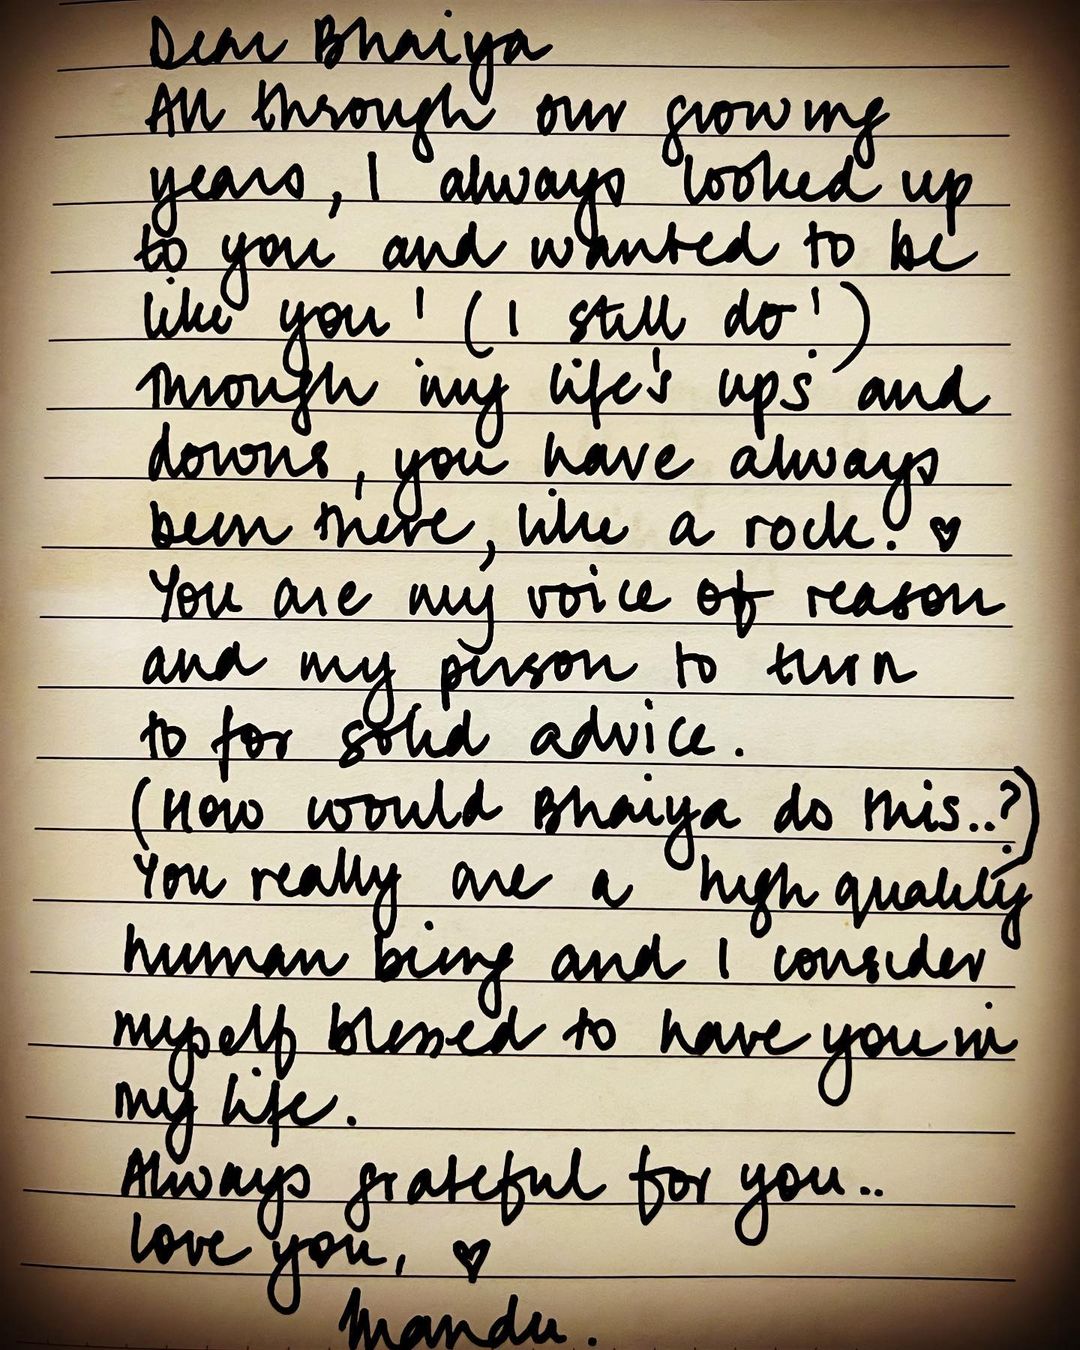 Dear Bhaiya
All through our growing
years, I always looked up
to you and wanted to be
like you! (I still do!)
Through my life's ups and
downs, you have always
been there, like a rock. ♥
You are my voice of reason
and my person to turn
to for solid advice.
(How would Bhaiya do this..?)
You really are a high quality
human being and I consider
myself blessed to have you in
my life.
Always grateful for you..
love you, ♥
Mandu.